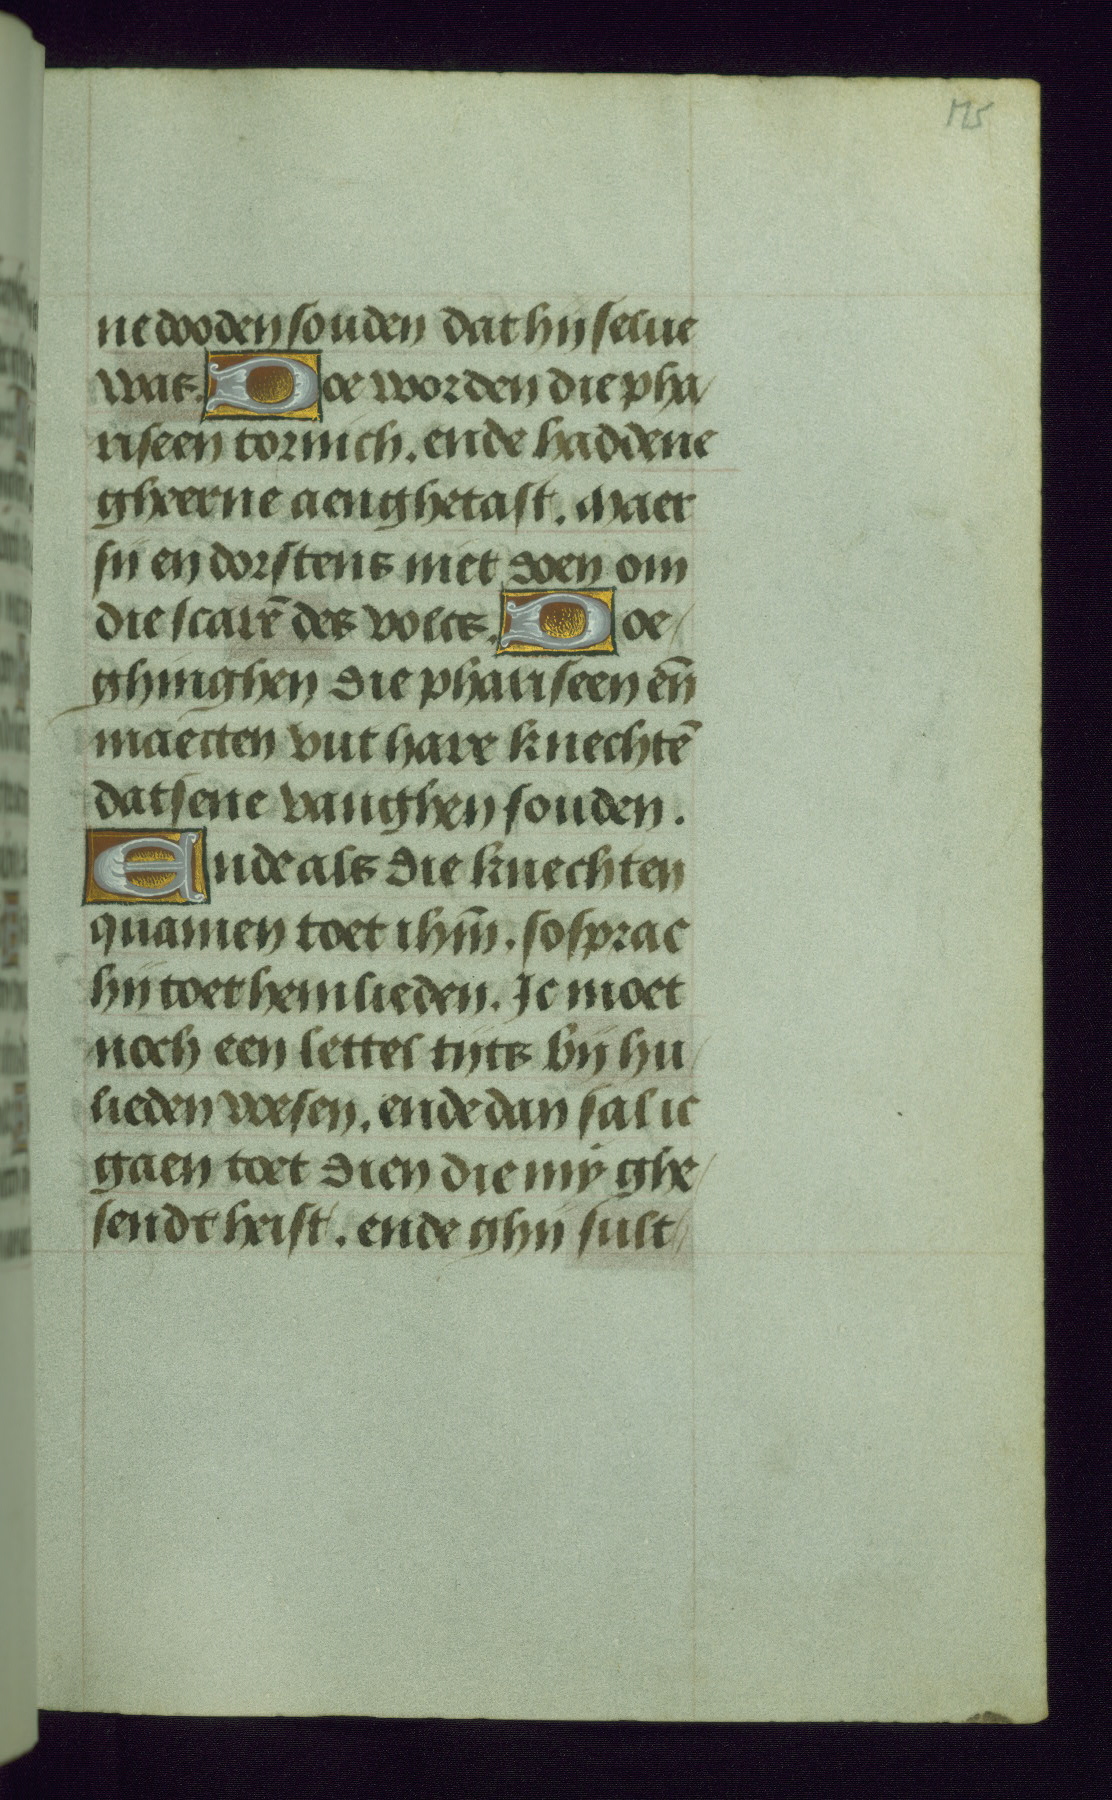 175
ne dooden souden dat hij selue
was. Doe worden die pha
riseen tornich. ende haddene
gheerne aenghetast. Maer
sij en dorstens niet doen om
die scarē des volcs. Doe
ghinghen die phariseen eñ
maecten vut hare knechtē
datsene vanghen souden.
Ende als die knechten
quamen toet ihm̄. so sprac
hij toet hemlieden. Ic moet
noch een lettel tijts bij hu
lieden wesen. ende dan sal ic
gaen toet dien die mÿ ghe
sendt heist. ende ghij sult